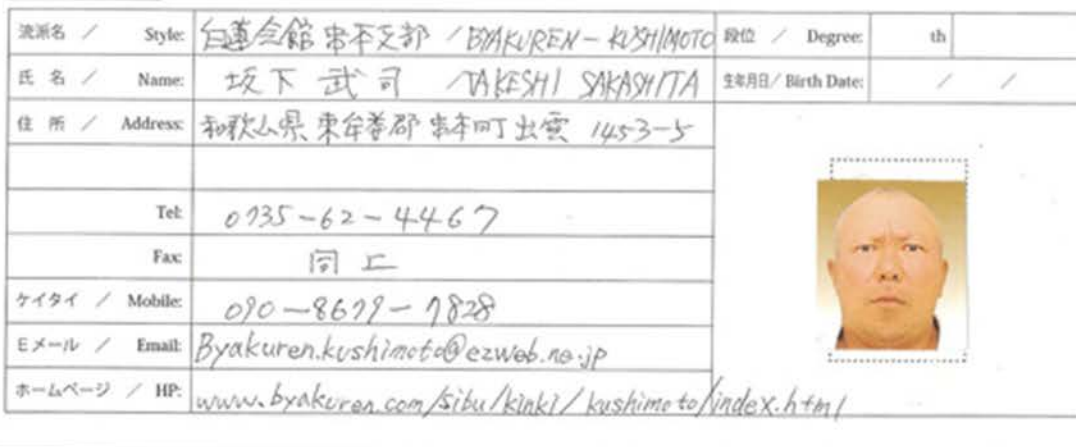 流派名 / Style: 白蓮会館 串本支部 / BYAKUREN-KUSHIMOTO 段位 / Degree: th
氏 名 / Name: 坂下 武司 /TAKESHI SAKASHITA 生年月日/ Birth Date: / /
住 所 / Address: 和歌山県 東牟婁郡 串本町 出雲 1453-5
Tel: 0735-62-4467
Fax: 同上
ケイタイ / Mobile: 090-8679-7828
Eメール / Email: Byakuren.kushimoto@ezweb.ne.jp
ホームページ / HP: www.byakuren.com/sibu/kinki/kushimoto/index.html